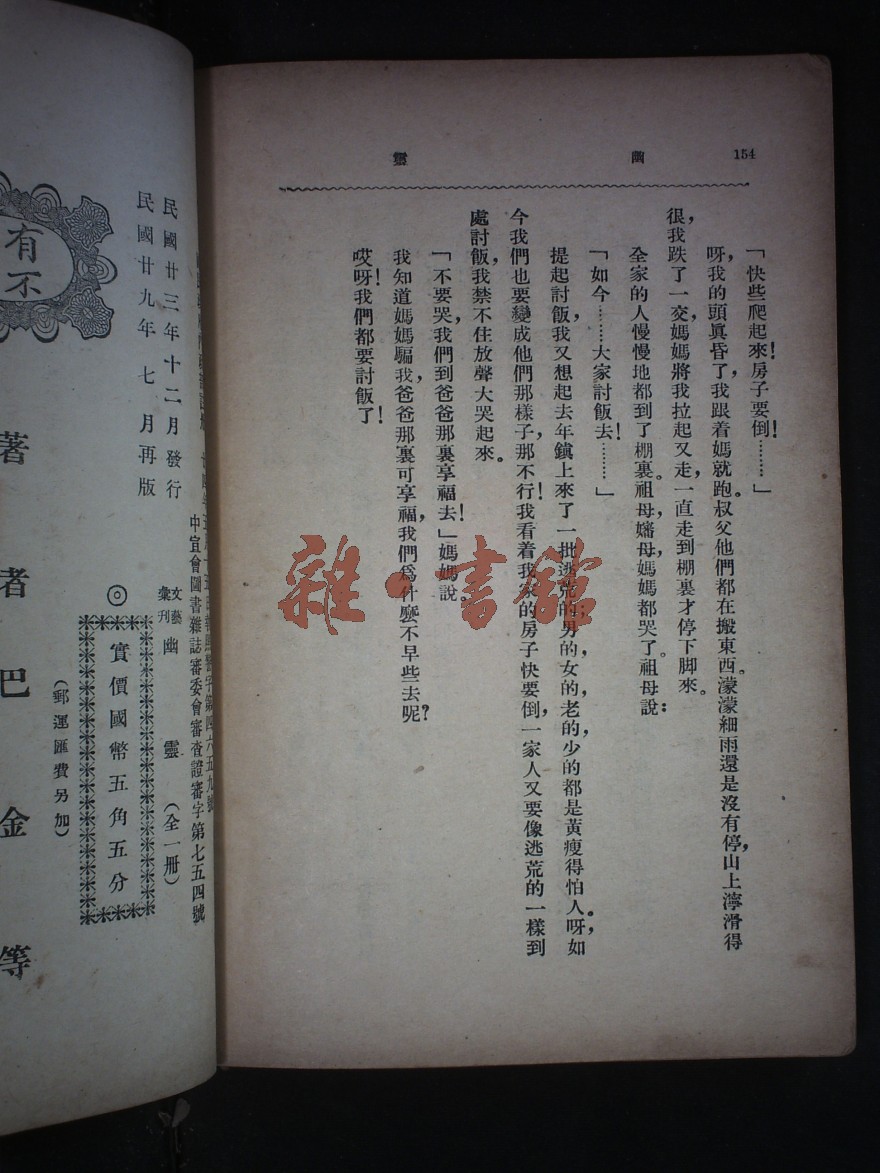 154
幽靈
「快些爬起來！房子要倒！………」
呀，我的頭眞昏了，我跟着媽就跑。叔父他們都在搬東西。濛濛細雨還是沒有停，山上濘滑得
很，我跌了一交，媽媽將我拉起又走，一直走到棚裏才停下脚來。
全家的人慢慢地都到了棚裏。祖母嬸母，媽媽都哭了。祖母說：
「如今……大家討飯去！………」
提起討飯，我又想起去年鎭上來了一批逃荒的，男的，女的，老的，少的都是黃瘦得怕人。呀，如
今我們也要變成他們那樣子，那不行！我看着我家的房子快要倒，一家人又要像逃荒的一樣到
處討飯，我禁不住放聲大哭起來。
「不要哭，我們到爸爸那裏享福去！」媽媽說
我知道媽媽騙我，爸爸那裏可享福，我們爲什麼不早些去呢？
哎呀！我們都要討飯了！
雜·書館
中宣會圖書雜誌審委會審查證審字第七五四號
民國廿三年十二月發行
民國廿九年七月再版
文藝彙刊 幽靈（全一冊）
實價國幣五角五分
（郵運匯費另加）
有不
著者巴金等